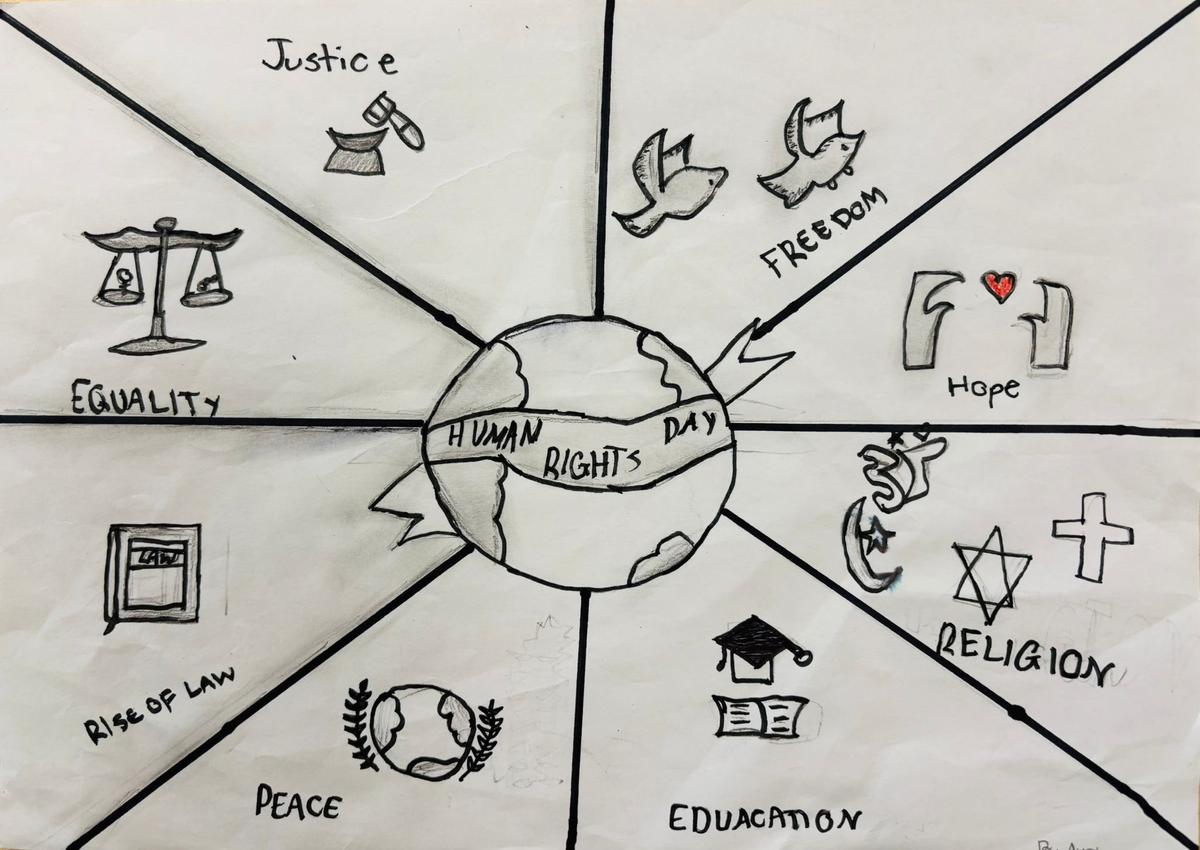 Justice
FREEDOM
EQUALITY
Hope
HUMAN
RIGHTS
DAY
ॐ
LAW
RISE OF LAW
RELIGION
PEACE
EDUACATION
By